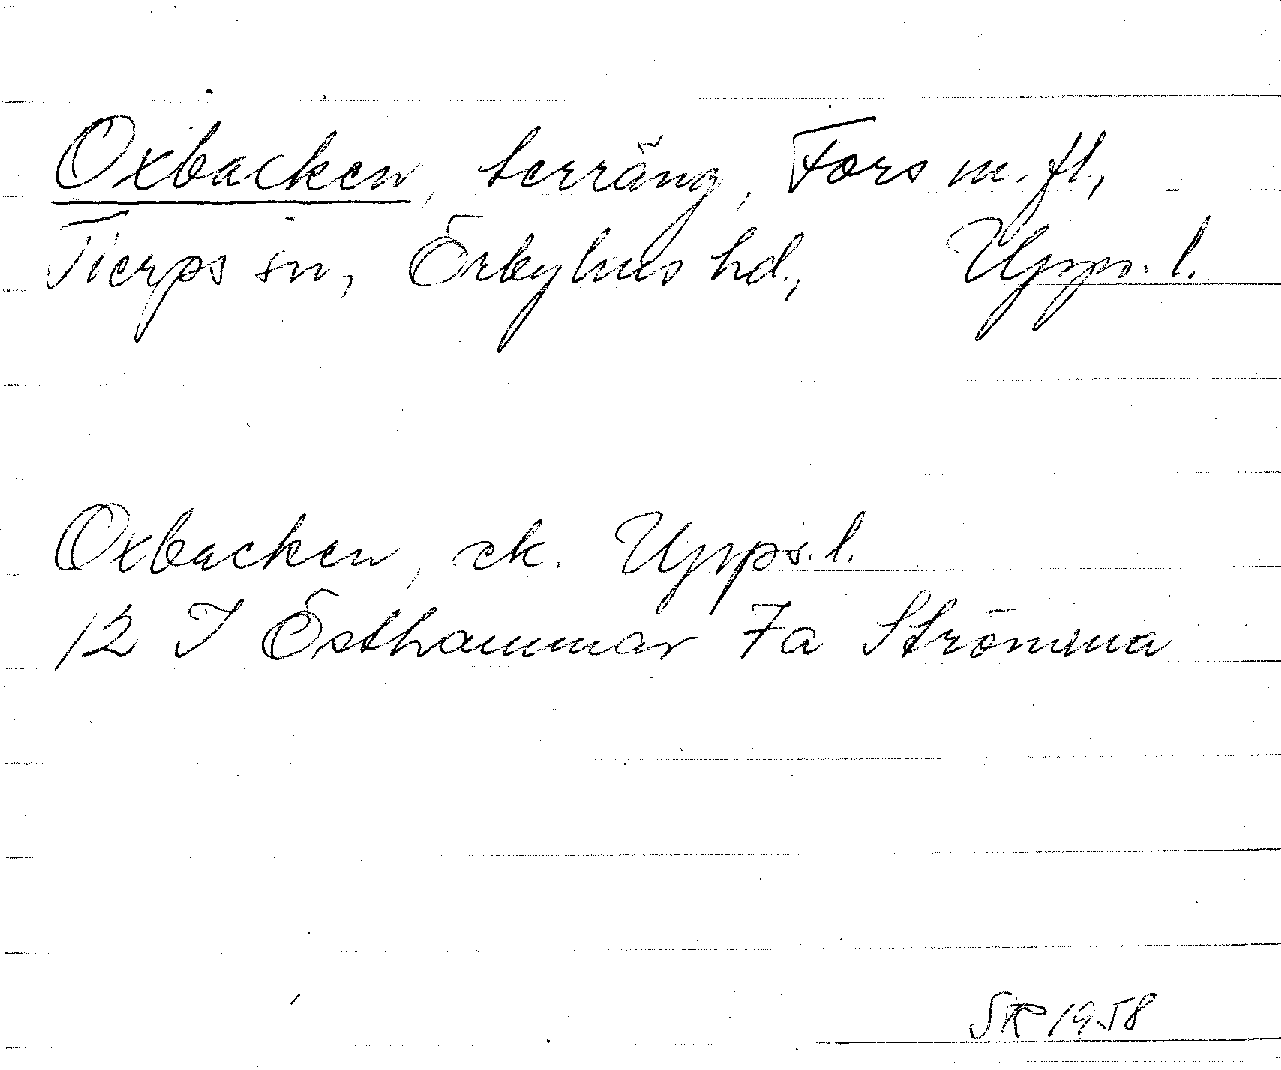 Oxbacken, terräng, Fors m.fl.,
Tierps sn, Örbyhus hd., Upps.l.
Oxbacken, ek. Upps.l.
12 I Östhammar 7a Strömma
SR 1958